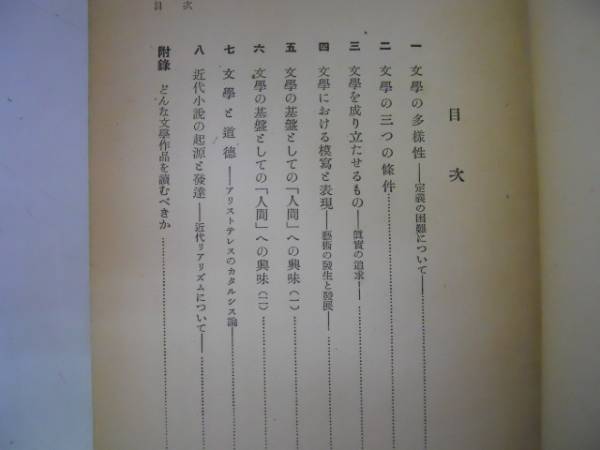 目次
目次
一 文學の多樣性――定義の困難について――
二 文學の三つの條件
三 文學を成り立たせるもの――眞實の追求――
四 文學における模寫と表現――藝術の發生と發展――
五 文學の基盤としての「人間」への興味(一)
六 文學の基盤としての「人間」への興味(二)
七 文學と道德――アリストテレスのカタルシス論――
八 近代小說の起源と發達――近代リアリズムについて――
附錄 どんな文學作品を讀むべきか